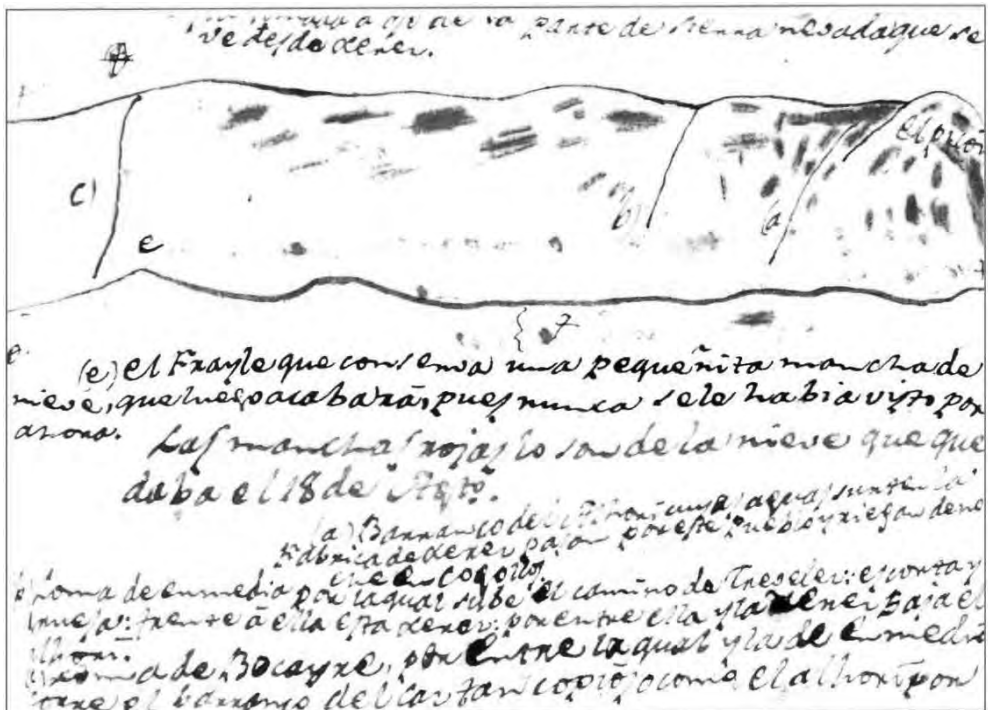 de la parte de Sierra nevada que se
ve desde Xerez.
el picón
c)
b)
(a
e
7
(e) el Frayle que conserva una pequeñita mancha de
nieve, que luego acabará, pues nunca se le habia visto por
ahora.
Las manchas rojas lo son de la nieve que que
daba el 18 de Agto.
(a) Barranco del Alhori cuyas aguas surten la
Fabrica de Xerez pasan por este Pueblo y riegan
en Cogollos
Loma de enmedio por la qual sube el camino de
frente à ella esta Xerez: por entre ella y la Xerez baja el
Alhori.
Loma de Bocayre, por entre la qual y la de enmedio
corre el barranco del tan copioso como el alhori por